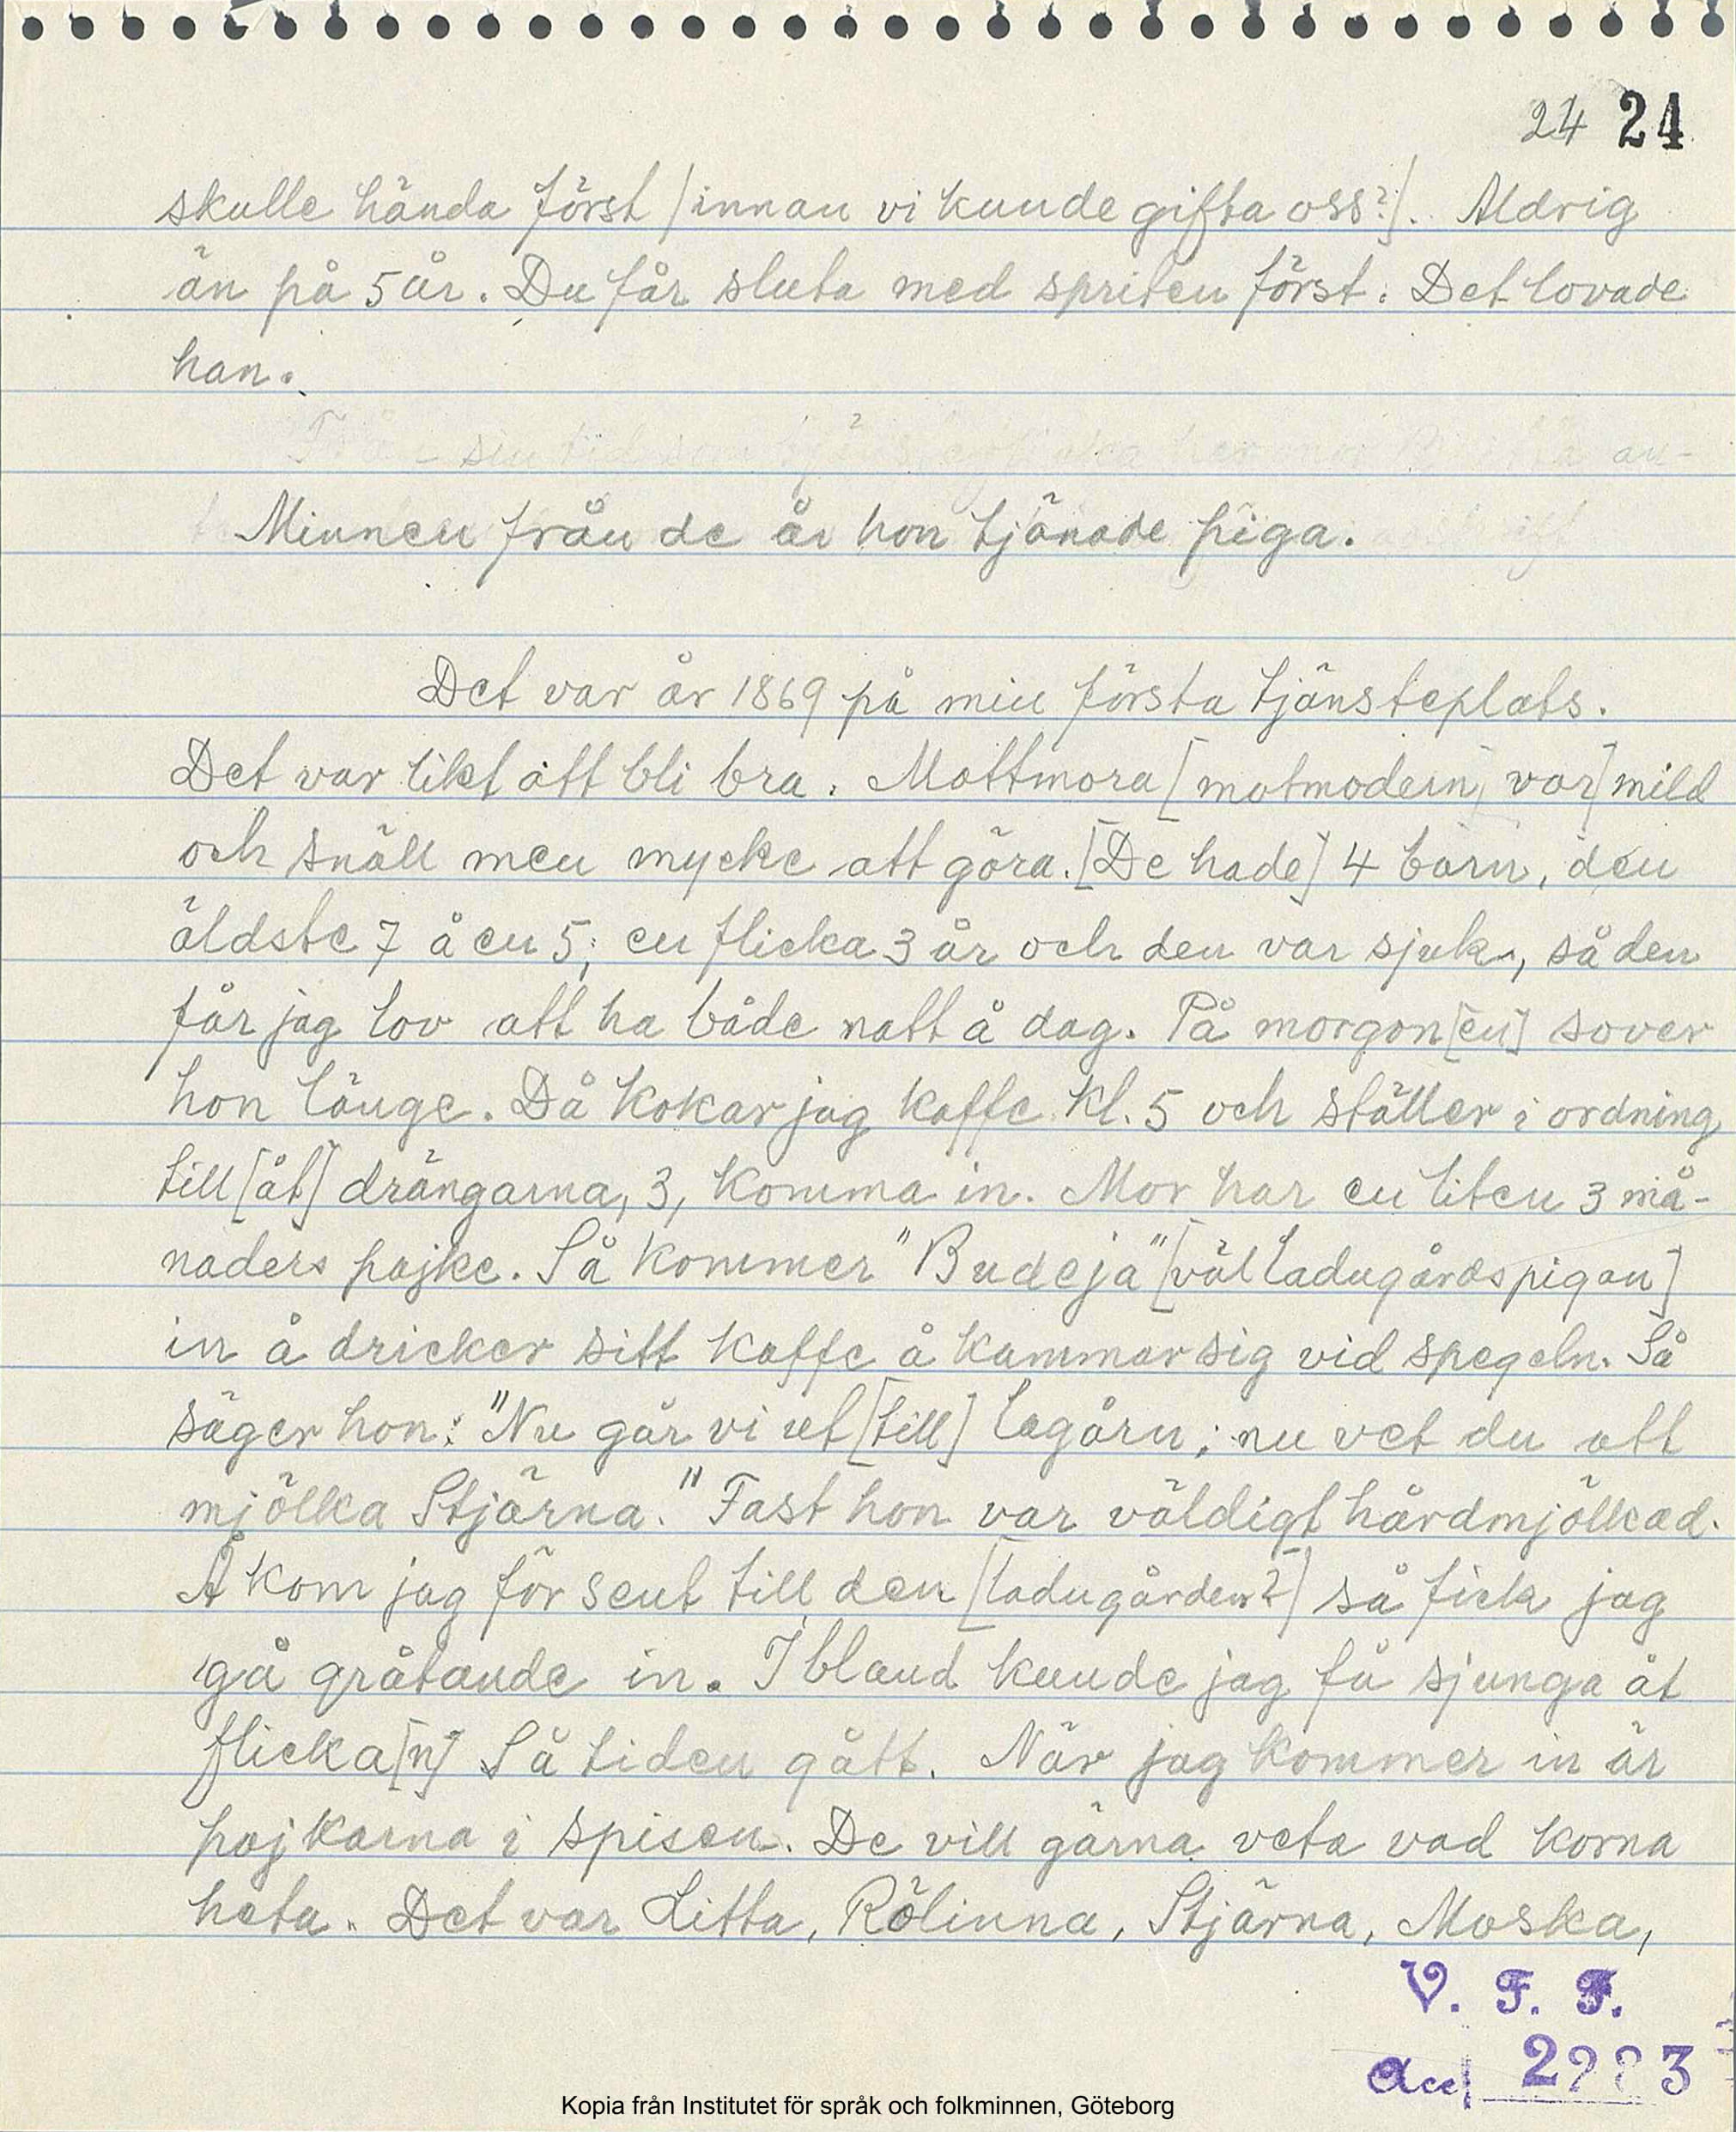 24 24
skulle hända först [innan vi kunde gifta oss?]. Aldrig
än på 5 år. Du får sluta med spriten först. Det lovade
han.
Minnen från de år hon tjänade piga.
Det var år 1869 på min första tjänsteplats.
Det var likt att bli bra. Mottmora [motmodern, var] mild
och snäll men mycke att göra. [De hade] 4 barn, den
äldste 7 å en 5; en flicka 3 år och den var sjuk, så den
får jag lov att ha både natt å dag. På morgon[en] sover
hon länge. Då kokar jag kaffe kl. 5 och ställer i ordning
till [åt] drängarna, 3, komma in. Mor har en liten 3 må-
naders pojke. Så kommer "Budeja" [väl ladugårdspigan]
in å dricker sitt kaffe å kammar sig vid spegeln. Så
säger hon: "Nu går vi ut [till] lagårn; nu vet du att
mjölka Stjärna." Fast hon var väldigt hårdmjölkad.
Å kom jag för sent till den [ladugården?] så fick jag
gå gråtande in. Ibland kunde jag få sjunga åt
flicka[n] Så tiden gått. När jag kommer in är
pojkarna i spisen. De vill gärna veta vad korna
heta. Det var Litta, Rölinna, Stjärna, Moska,
V. F. F.
Acc
Kopia från Institutet för språk och folkminnen, Göteborg